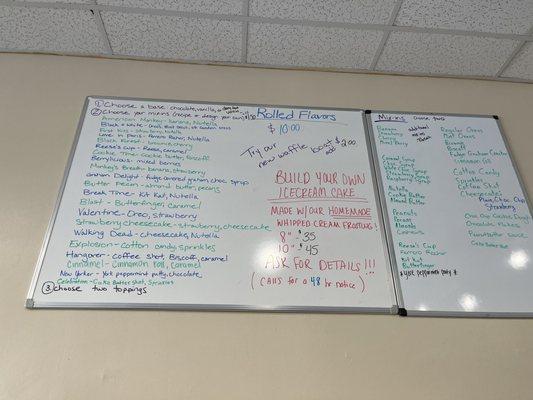 ① Choose a base chocolate, vanilla, or
② Choose your mix-ins (recipe or design your own)
American Monkey - banana, Nutella
Black & White -
First Kiss - strawberry, Nutella
Love in Paris - Ferrero Rocher, Nutella
Black Forest - brownie, cherry
Reese's Cup - Reese's, caramel
Cookie Time - cookie butter, biscoff
Berrylicious - mixed berries
Monkey's Breath - banana, strawberry
Graham Delight - fudge covered graham, choc. syrup
Butter Pecan - almond butter, pecans
Break Time - Kit Kat, Nutella
Blast - Butterfinger, caramel
Valentine - Oreo, strawberry
Strawberry Cheesecake - strawberry, cheesecake
Walking Dead - cheesecake, Nutella
Explosion - cotton candy, sprinkles
Hangover - coffee shot, Biscoff, caramel
Cinnamel - Cinnamon roll, caramel
New Yorker - York peppermint patty, chocolate
Celebration - Cake Batter Shot, Sprinkles
③ Choose two toppings
Rolled Flavors
$10.00
Try our
new waffle boat
add $2.00
BUILD YOUR OWN
ICECREAM CAKE
MADE W/OUR HOMEMADE
WHIPPED CREAM FROSTING!
8" - $35
10" $45
ASK FOR DETAILS!!!
(CALLS for a 48 hr notice)
Mix-ins choose two
additional
Banana
Strawberry
Cherry
Mixed Berry
Caramel Syrup
Choc. Syrup
Strawberry Syrup
Nutella
Cookie Butter
Almond Butter
Peanuts
Pecans
Almonds
Coconuts
Reese's Cup
Ferrero Rocher
Kit Kat
Butterfinger
*York peppermint patty*
Regular Oreos
Mint Oreos
Brownie
Biscoff
Fudge Graham Cracker
Cinnamon Roll
Cotton Candy
Sprinkles
Coffee Shot
Cheesecake
Plain, Choc. Chip
Strawberry
Chocolate Flakes